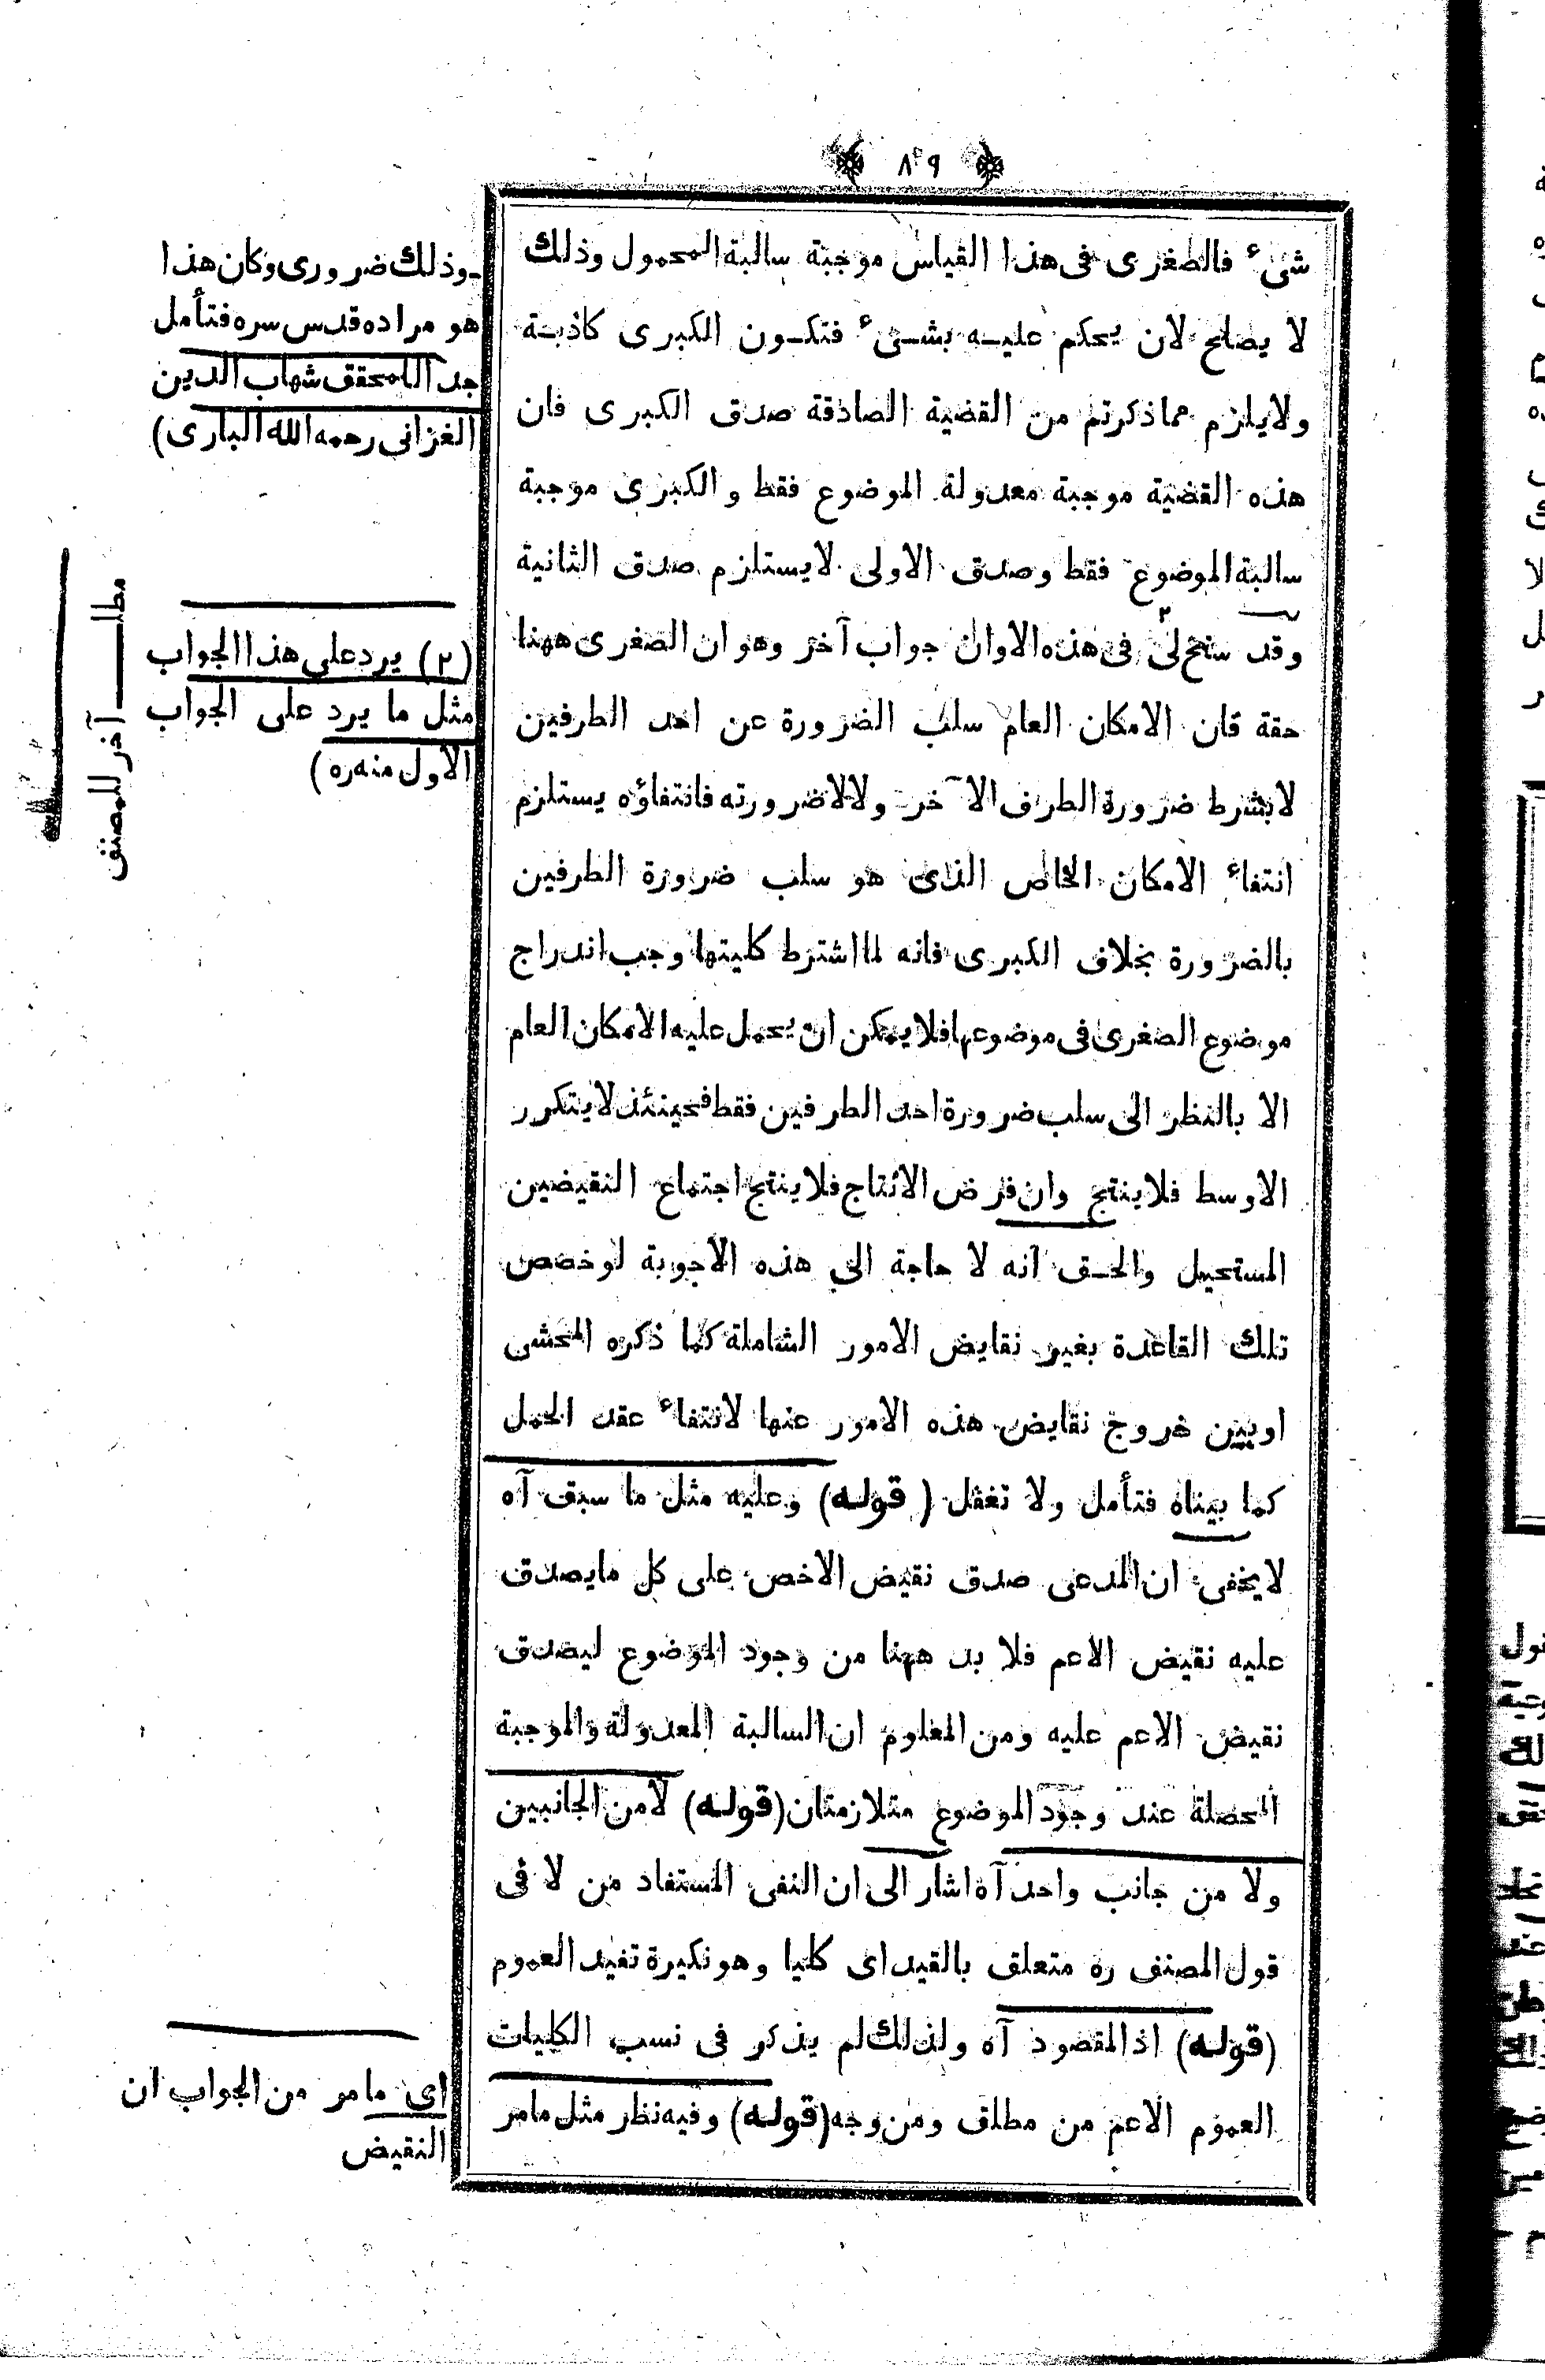 ٨٩
شئ فالصغرى فى هذا القياس موجبة سالبة المحمول وذلك
لا يصلح لان يحكم عليه بشئ فتكون الكبرى كاذبة
ولايلزم مما ذكرتم من القضية الصادقة صدق الكبرى فان
هذه القضية موجبة معدولة الموضوع فقط والكبرى موجبة
سالبة الموضوع فقط وصدق الاولى لايستلزم صدق الثانية
وقد سنح لى ٢ فى هذه الاوان جواب آخر وهو ان الصغرى ههنا
حقة فان الامكان العام سلب الضرورة عن احد الطرفين
لابشرط ضرورة الطرف الآخر ولا لاضرورته فانتفاؤه يستلزم
انتفاء الامكان الخاص الذى هو سلب ضرورة الطرفين
بالضرورة بخلاف الكبرى فانه لما اشترط كليتها وجب اندراج
موضوع الصغرى فى موضوعها فلا يمكن ان يحمل عليه الامكان العام
الا بالنظر الى سلب ضرورة احد الطرفين فقط فحينئذ لايتكرر
الاوسط فلا ينتج وان فرض الانتاج فلا ينتج اجتماع النقيضين
المستحيل والحق انه لا حاجة الى هذه الاجوبة لو خصص
تلك القاعدة بغير نقايض الامور الشاملة كما ذكره المحشى
او يبين خروج نقايض هذه الامور عنها لانتفاء عقد الحمل
كما بيناه فتأمل ولا تغفل (قوله) وعليه مثل ما سبق آه
لايخفى ان المدعى صدق نقيض الاخص على كل مايصدق
عليه نقيض الاعم فلا بد ههنا من وجود الموضوع ليصدق
نقيض الاعم عليه ومن المعلوم ان السالبة المعدولة والموجبة
المحصلة عند وجود الموضوع متلازمتان (قوله) لامن الجانبين
ولا من جانب واحد آه اشار الى ان النفى المستفاد من لا فى
قول المصنف ره متعلق بالقيد اى كليا وهو نكيرة تفيد العموم
(قوله) اذ المقصود آه ولذلك لم يذكر فى نسب الكليات
العموم الاعم من مطلق ومن وجه (قوله) وفيه نظر مثل مامر
ـوذلك ضرورى وكان هذا
هو مراده قدس سره فتأمل
جدا للمحقق شهاب الدين
الغزانى رحمه الله البارى)
مطلــــب آخر للمصنف
(٢) يرد على هذا الجواب
مثل ما يرد على الجواب
الاول منه ره)
اى مامر من الجواب ان
النقيض